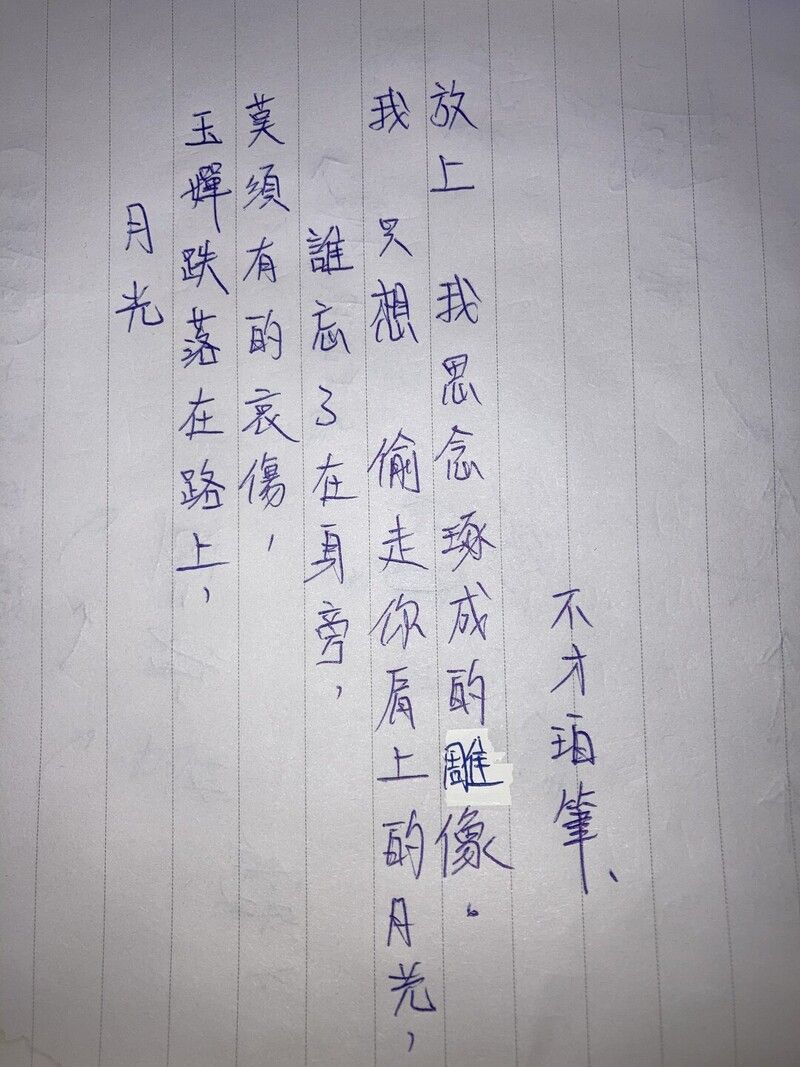 月光
玉嬋跌落在路上,
莫須有的哀傷,
誰忘了在身旁,
我 只想 偷走你肩上的月光,
放上 我思念琢成的雕像。
不才珀筆、